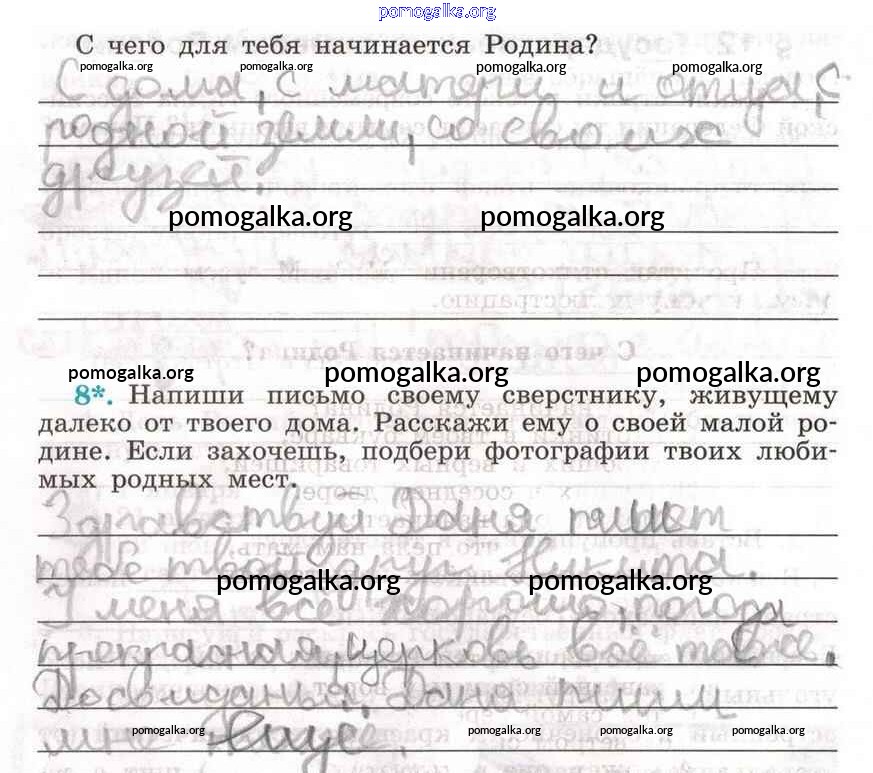 pomogalka.org
С чего для тебя начинается Родина?
pomogalka.org pomogalka.org pomogalka.org pomogalka.org
С дома, с матери и отца, с
родной земли, со своих
друзей.
pomogalka.org pomogalka.org
pomogalka.org pomogalka.org pomogalka.org
8*. Напиши письмо своему сверстнику, живущему
далеко от твоего дома. Расскажи ему о своей малой ро-
дине. Если захочешь, подбери фотографии твоих люби-
мых родных мест.
Здравствуй Даня пишет
тебе твой друг Никита.
pomogalka.org pomogalka.org
У меня всё хорошо, погода
прекрасная, церковь всё таже.
Досвидания. Даня пиши
мне ещё.
pomogalka.org pomogalka.org pomogalka.org pomogalka.org